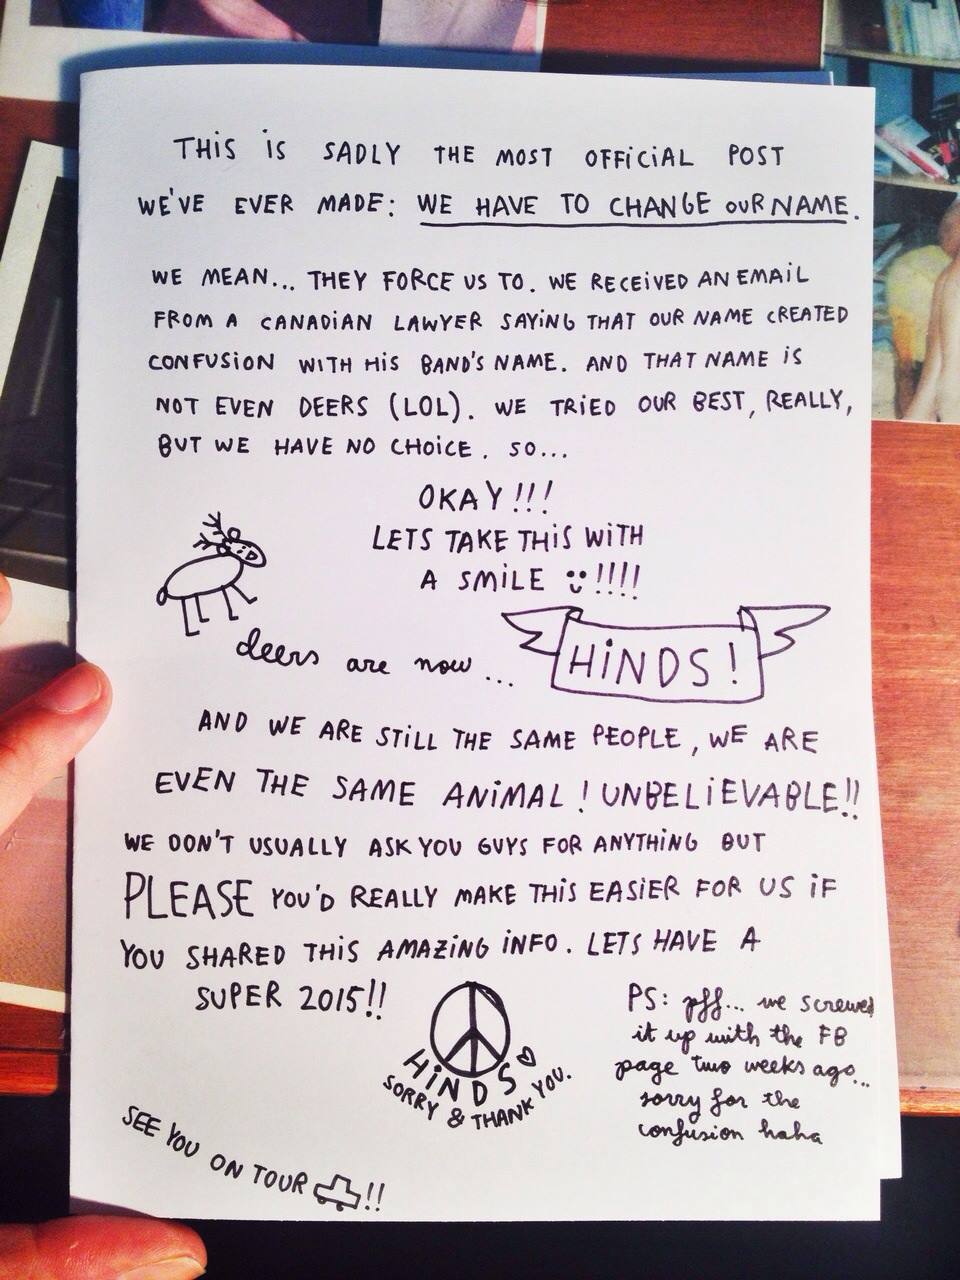 THiS iS SADLY THE MOST OFFiCiAL POST
WE'VE EVER MADE: WE HAVE TO CHANGE OUR NAME.
WE MEAN... THEY FORCE US TO. WE RECEiVED AN EMAiL
FROM A CANADiAN LAWYER SAYiNG THAT OUR NAME CREATED
CONFUSiON WiTH HiS BAND'S NAME. AND THAT NAME iS
NOT EVEN DEERS (LOL). WE TRiED OUR BEST, REALLY,
BUT WE HAVE NO CHOiCE. SO...
OKAY!!!
LETS TAKE THiS WiTH
A SMiLE !!!!
deers are now...
HiNDS!
AND WE ARE STiLL THE SAME PEOPLE, WE ARE
EVEN THE SAME ANiMAL! UNBELiEVABLE!!
WE DON'T USUALLY ASK YOU GUYS FOR ANYTHiNG BUT
PLEASE YOU'D REALLY MAKE THiS EASiER FOR US iF
YOU SHARED THiS AMAZiNG iNFO. LETS HAVE A
SUPER 2015!!
HiNDS
SORRY & THANK YOU.
PS: pff... we screwed
it up with the FB
page two weeks ago...
sorry for the
confusion haha
SEE YOU ON TOUR !!